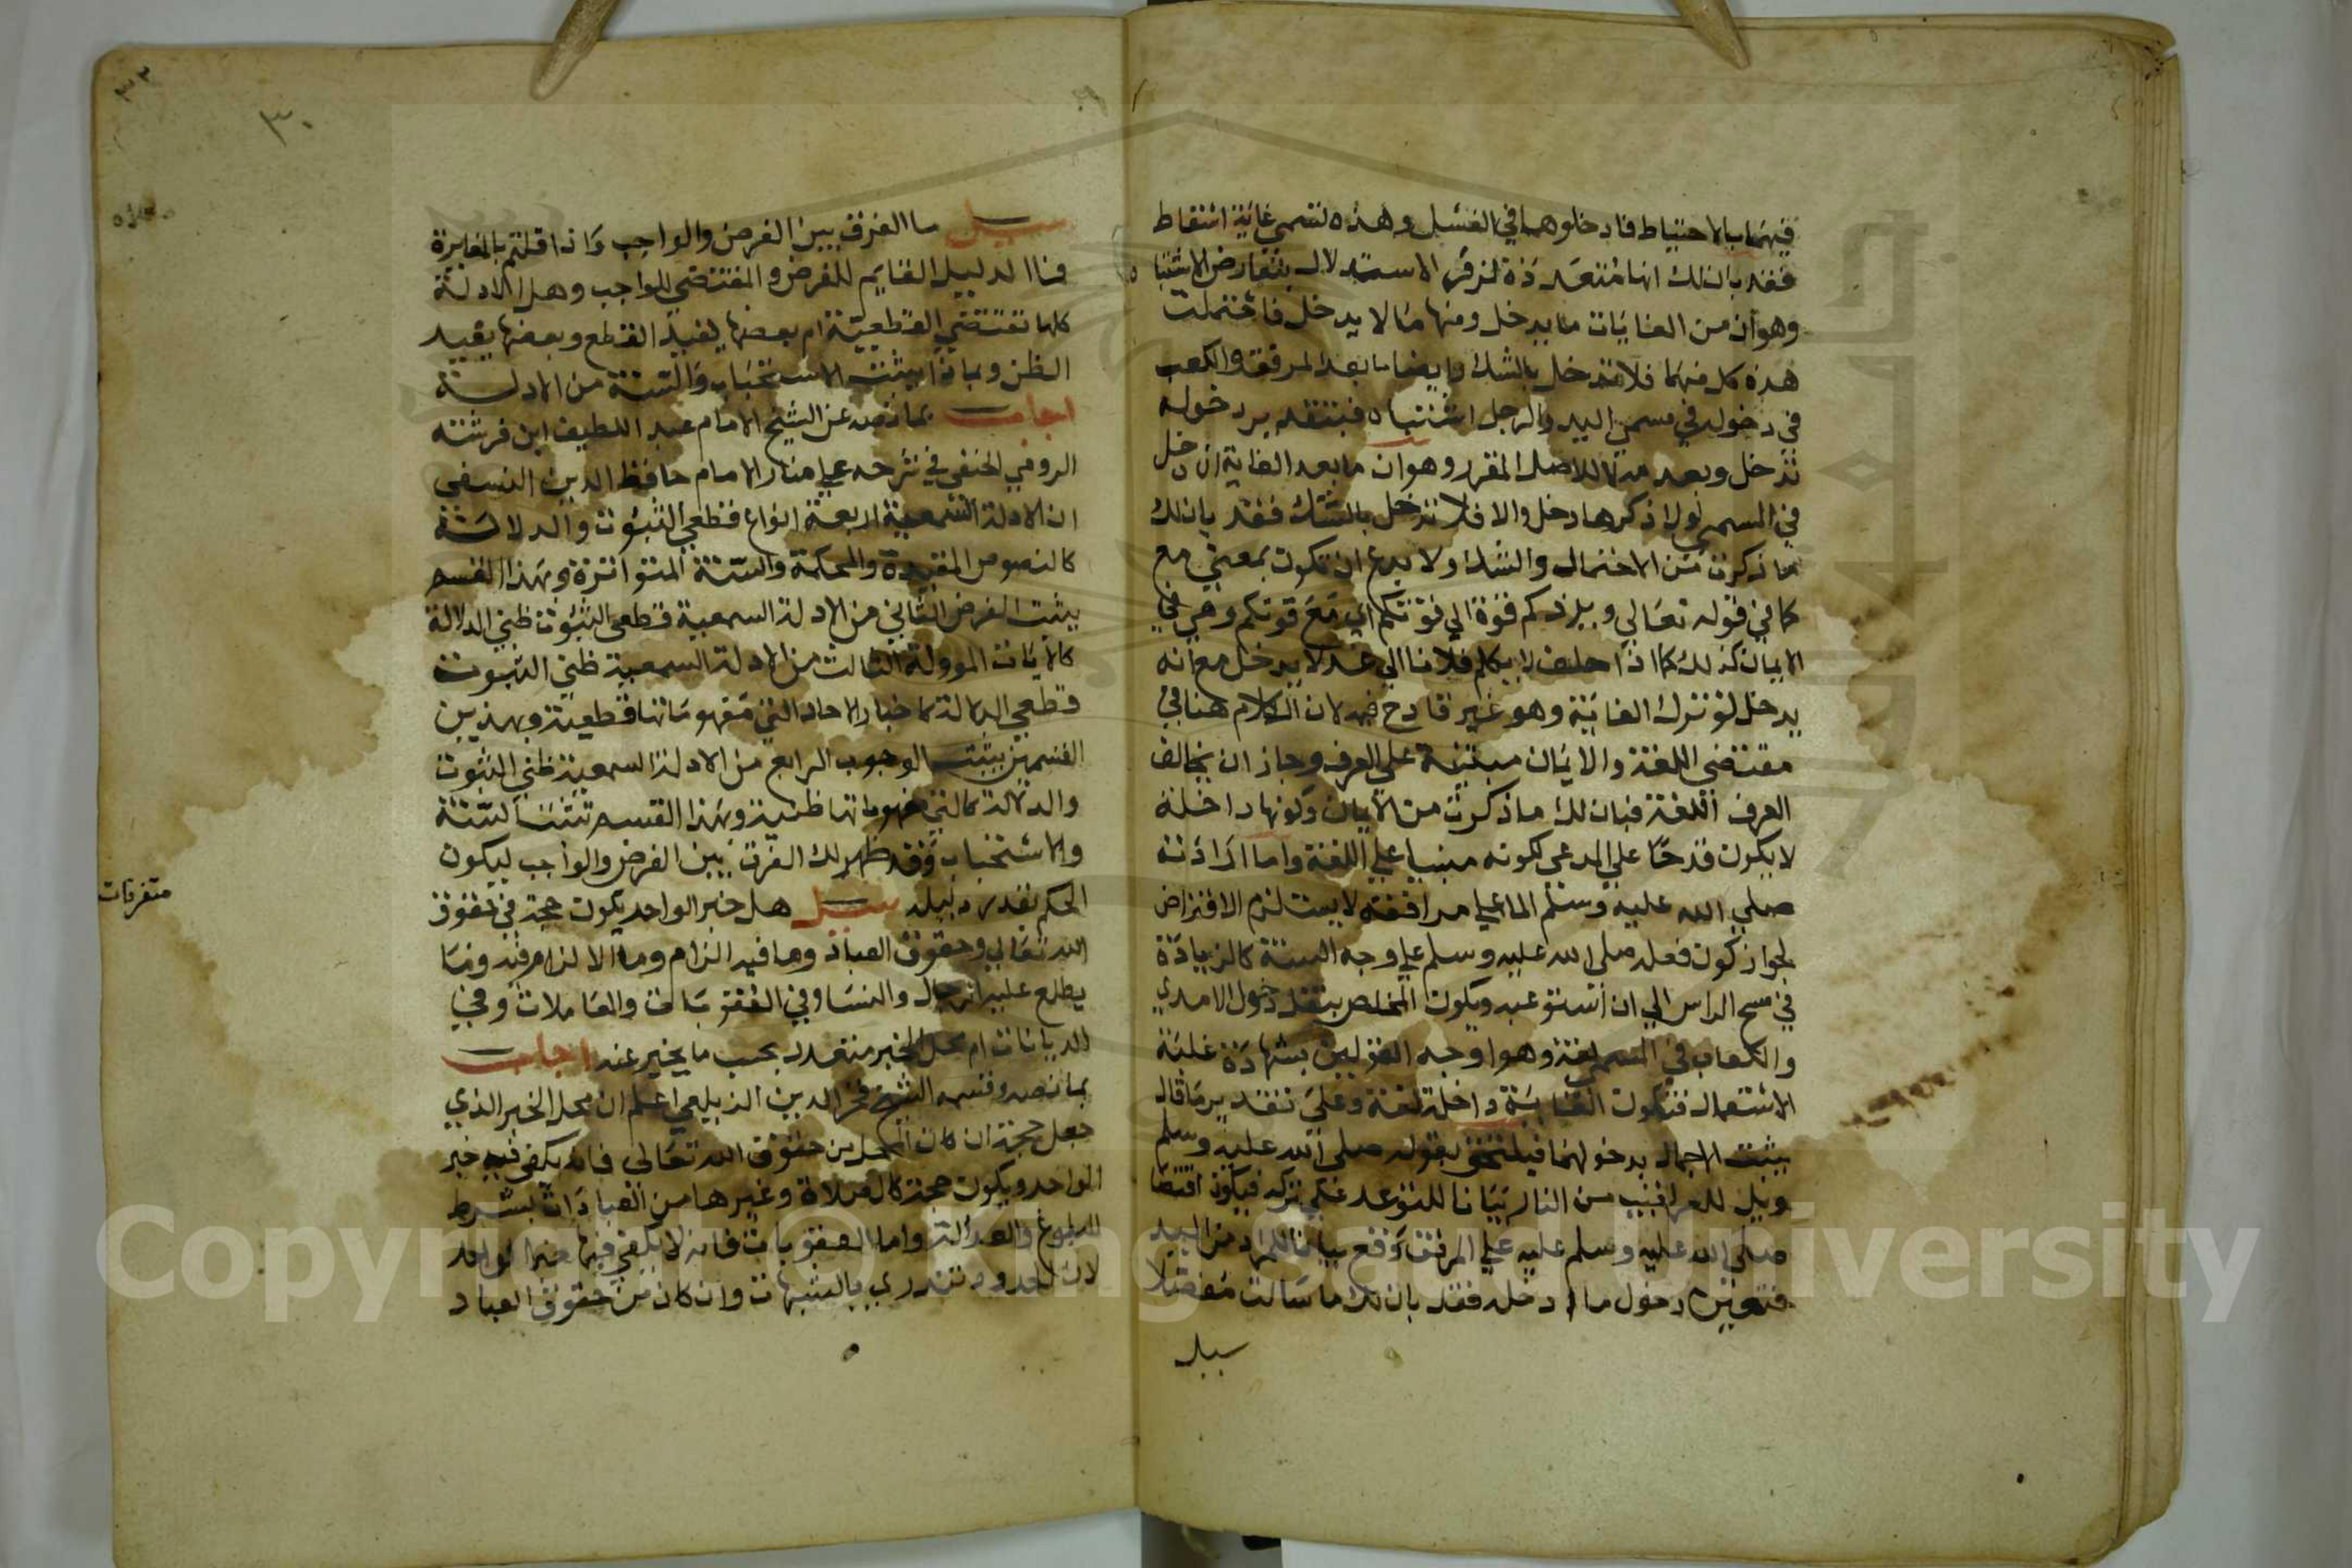 فيهما بالاحتياط فادخلوهما في الغسل وهذه تسمي غاية اسقاط
فقد بان لك انها متعددة لزفر الاستدلال بتعارض الاشتباه
وهو ان من الغايات ما يدخل ومنها ما لا يدخل فاحتملت
هذه كل منهما فلا تدخل بالشك وايضا ما بعد المرفق والكعب
في دخوله في مسمي اليد والرجل اشتباه فبتقدير دخوله
تدخل وبعدمه لا للاصل المقرر وهو ان ما بعد الغاية ان دخل
في المسمي لولا ذكرها دخل والا فلا تدخل بالشك فقد بان لك
ما ذكرت من الاحتمال والشك ولا يدع ان تكون بمعني مع
كما في قوله تعالي ويزدكم قوة الي قوتكم اي مع قوتكم وهي في
الايمان كذلك كما اذا حلف لا يكلم فلانا الي غد لا يدخل مع انه
يدخل لو ترك الغاية وهو غير قادح فيه لان الكلام هنا في
مقتضي اللغة والايمان مبنية علي العرف وجاز ان يخالف
العرف اللغة فبان لك ما ذكرت من الايمان وكونها داخلة
لا يكون قدحا علي المدعي لكونه مبنيا علي اللغة واما ادارته
صلي الله عليه وسلم الما علي مرافقه لا يستلزم الافتراض
لجواز كون فعله صلي الله عليه وسلم علي وجه السنة كالزيادة
في مسح الراس الي ان استوعبه ويكون المخلص بنقل دخول الامدي
والكعاب في المسمي لغة وهو اوجه القولين بشهادة غلبة
الاستعمال فتكون الغاية داخلة لغة وعلي تقدير ما قال
يثبت الاجمال بدخولهما فيلتحق بقوله صلي الله عليه وسلم
ويل للعراقيب من النار بيانا للتوعد علي تركه فيكون اقتضا
صلي الله عليه وسلم عليه علي المرفق وقع بيانا للمراد من اليد
فتعين دخول ما ادخله فقد بان لك ما سالت مفصلا
سيل
٣٠
سيل ما الفرق بين الفرض والواجب واذا قلتم بالمغايرة
فما الدليل القايم للفرض والمقتضي للواجب وهل الادلة
كلها تقتضي القطعية ام بعضها يفيد القطع وبعضها يفيد
الظن وبماذا يثبت الاستحباب والسنة من الادلة
اجاب بما نصه عن الشيخ الامام عبد اللطيف ابن فرشته
الرومي الحنفي في شرحه علي منار الامام حافظ الدين النسفي
ان الادلة السمعية اربعة انواع قطعي الثبوت والدلالة
كالنصوص المقيدة والمحكمة والسنة المتواترة وبهذا القسم
يثبت الفرض الثاني من الادلة السمعية قطعي الثبوت ظني الدلالة
كالايات الموولة الثالث من الادلة السمعية ظني الثبوت
قطعي الدلالة كاخبار الاحاد التي مفهوماتها قطعية وبهذين
القسمين يثبت الوجوب الرابع من الادلة السمعية ظني الثبوت
والدلالة كالتي مفهوماتها ظنية وبهذا القسم تثبت السنة
والاستحباب وقد ظهر لك الفرق بين الفرض والواجب ليكون
الحكم بقدر دليله سيل هل خبر الواحد يكون حجة في حقوق
الله تعالي وحقوق العباد وما فيه الزام وما لا الزام فيه وما
يطلع عليه الرجال والنسا وفي العقوبات والمعاملات وفي
الديانات ام محل الخبر متعدد بحسب ما يخبر عنه اجاب
بما نصه وقسمه الشيخ فخر الدين الزيلعي اعلم ان محل الخبر الذي
جعل حجة ان كان المحل من حقوق الله تعالي فانه يكفي فيه خبر
الواحد ويكون حجة كالصلاة وغيرها من العبادات بشرط
البلوغ والعدالة واما العقوبات فانه لا يكفي فيها خبر الواحد
لان الحدود تندري بالشبهات وان كان من حقوق العباد
متفرقات
Copyright © King Saud University